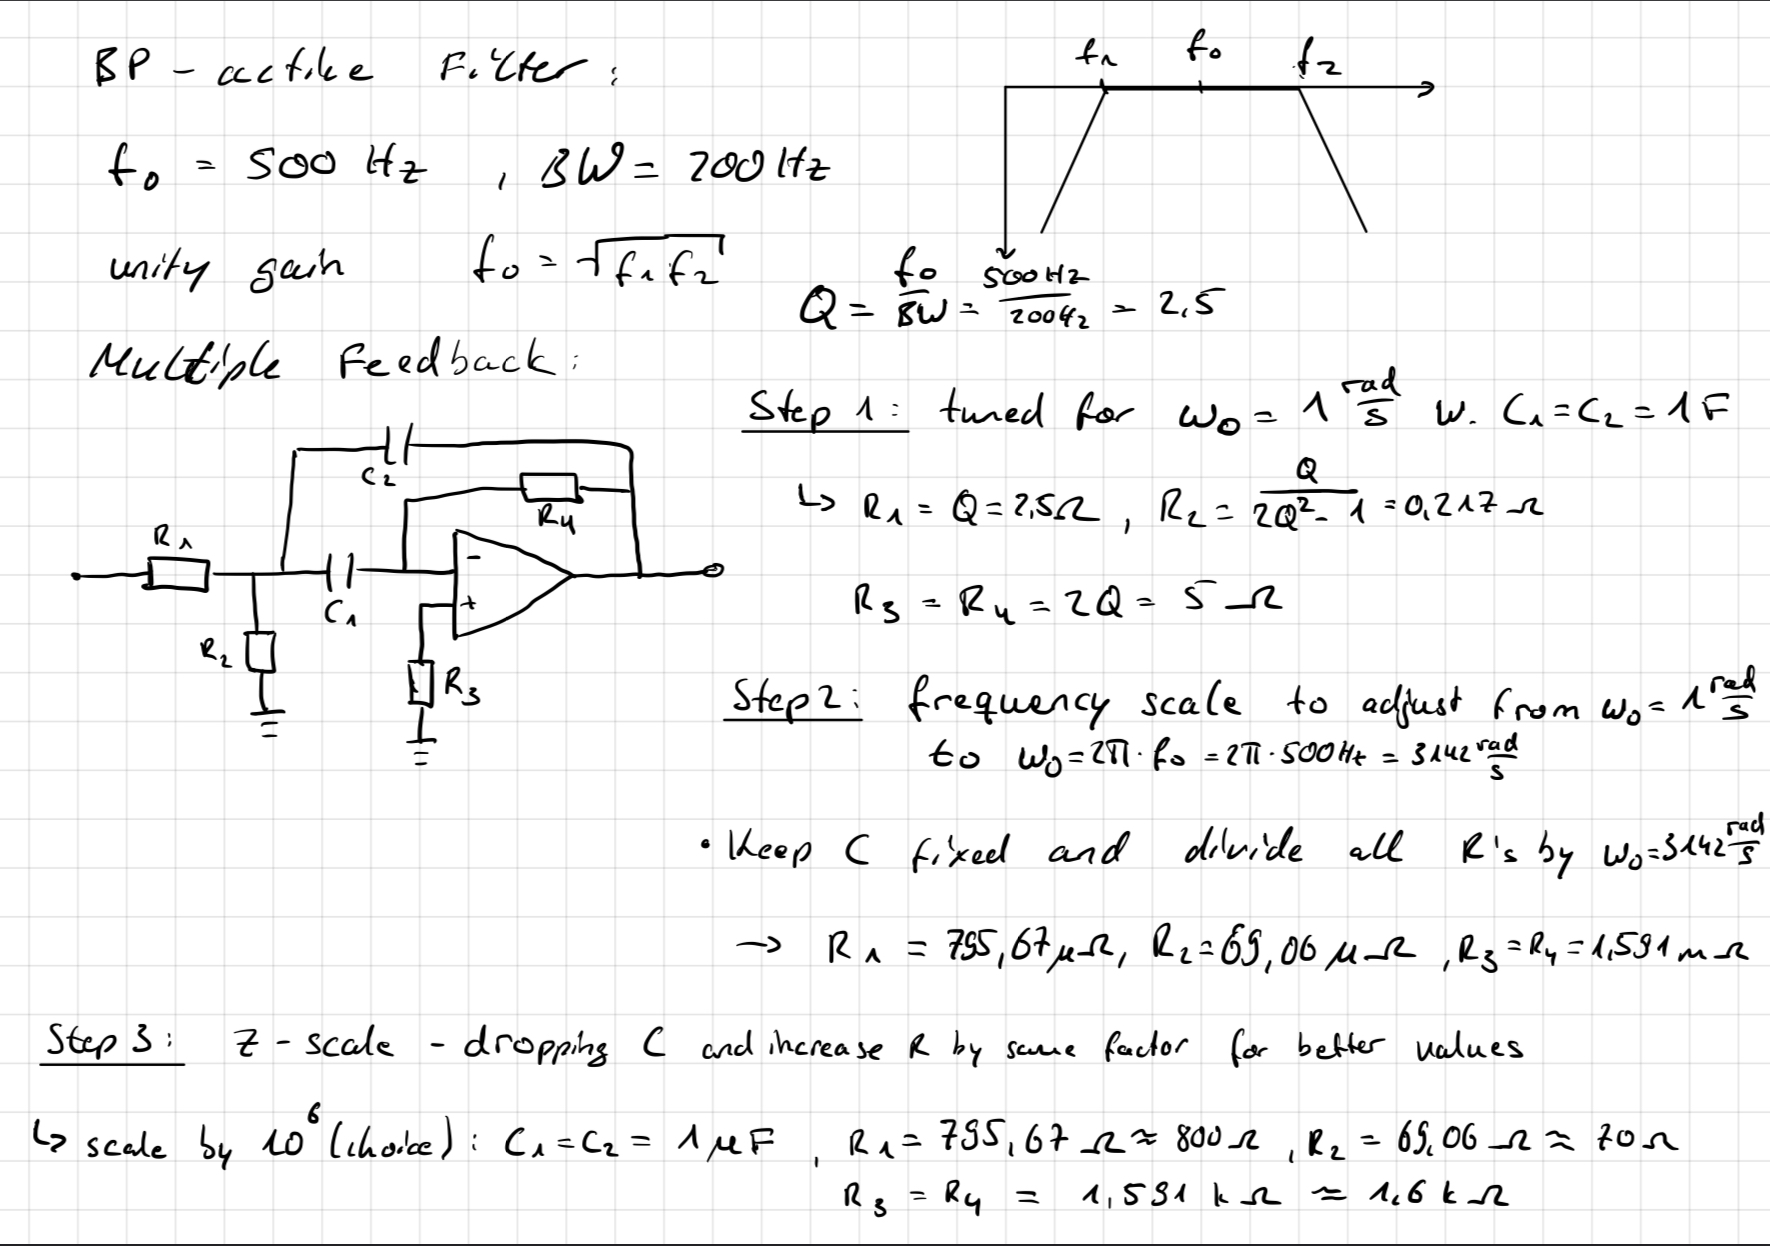 BP - active Filter:
f₀ = 500 Hz , BW = 200 Hz
unity gain f₀ = √(f₁ f₂)
f₁ f₀ f₂
Q = f₀/BW = 500Hz/200Hz = 2,5
Multiple Feedback:
C₂
R₄
R₁
C₁
-
+
R₂
R₃
Step 1: tuned for ω₀ = 1 rad/s w. C₁ = C₂ = 1 F
↳ R₁ = Q = 2,5Ω , R₂ = Q/(2Q² - 1) = 0,217 Ω
R₃ = R₄ = 2Q = 5 Ω
Step 2: frequency scale to adjust from ω₀ = 1 rad/s
to ω₀ = 2π · f₀ = 2π · 500Hz = 3142 rad/s
• Keep C fixed and divide all R's by ω₀ = 3142 rad/s
→ R₁ = 795,67 μΩ, R₂ = 69,06 μΩ , R₃ = R₄ = 1,591 mΩ
Step 3: Z - scale - dropping C and increase R by same factor for better values
↳ scale by 10⁶ (choice) : C₁ = C₂ = 1 μF , R₁ = 795,67 Ω ≈ 800 Ω , R₂ = 69,06 Ω ≈ 70 Ω
R₃ = R₄ = 1,591 kΩ ≈ 1,6 kΩ